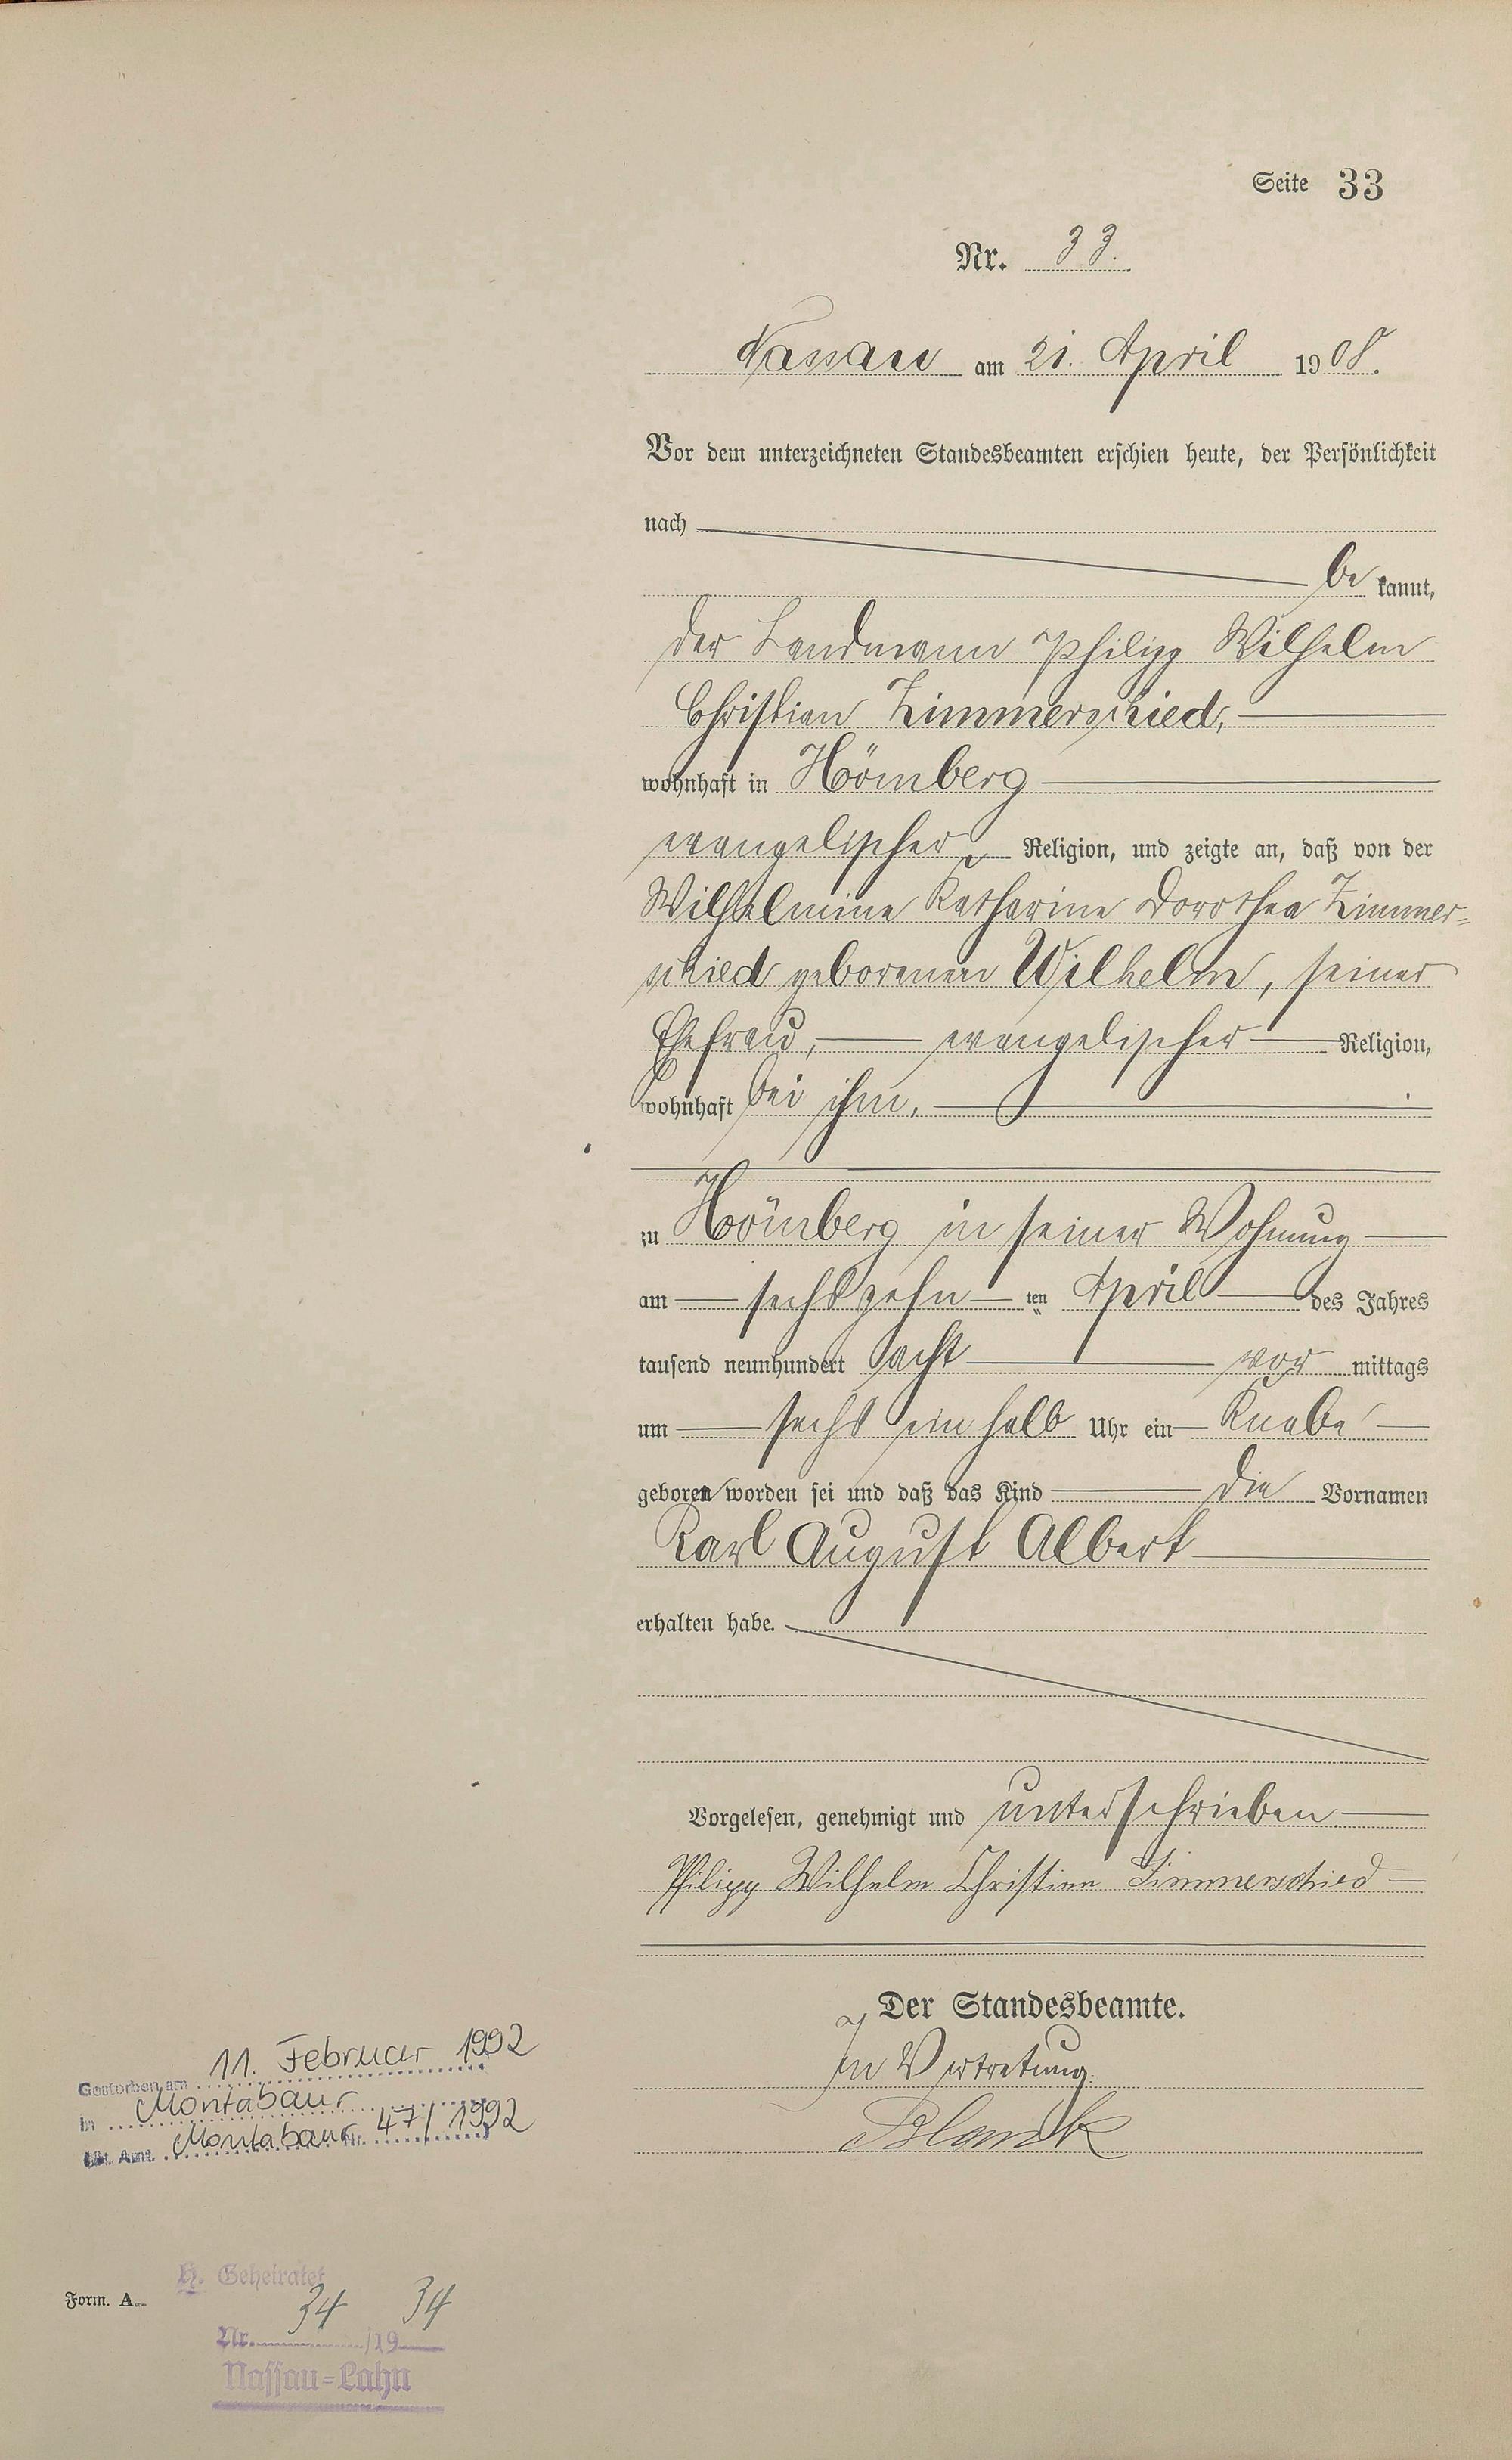 Seite 33
Nr. 33.
Nassau am 21. April 1908.
Vor dem unterzeichneten Standesbeamten erschien heute, der Persönlichkeit
nach
be kannt,
der Landmann Philipp Wilhelm
Christian Zimmerschied,
wohnhaft in Hömberg
evangelischer Religion, und zeigte an, daß von der
Wilhelmine Katharine Dorothea Zimmer-
schied geborenen Wilhelm, seiner
Ehefrau, evangelischer Religion,
wohnhaft bei ihm,
zu Hömberg in seiner Wohnung
am sechszehn ten April des Jahres
tausend neunhundert acht vor mittags
um sechs ein halb Uhr ein Knabe
geboren worden sei und daß das Kind die Vornamen
Karl August Albert
erhalten habe.
Vorgelesen, genehmigt und unterschrieben
Philipp Wilhelm Christian Zimmerschied
Der Standesbeamte.
In Vertretung
Blank
Gestorben am 11. Februar 1992
in Montabaur
St. Amt. Montabaur Nr. 47/1992
Form. A.
H. Geheiratet
Nr. 34 /19 34
Nassau=Lahn